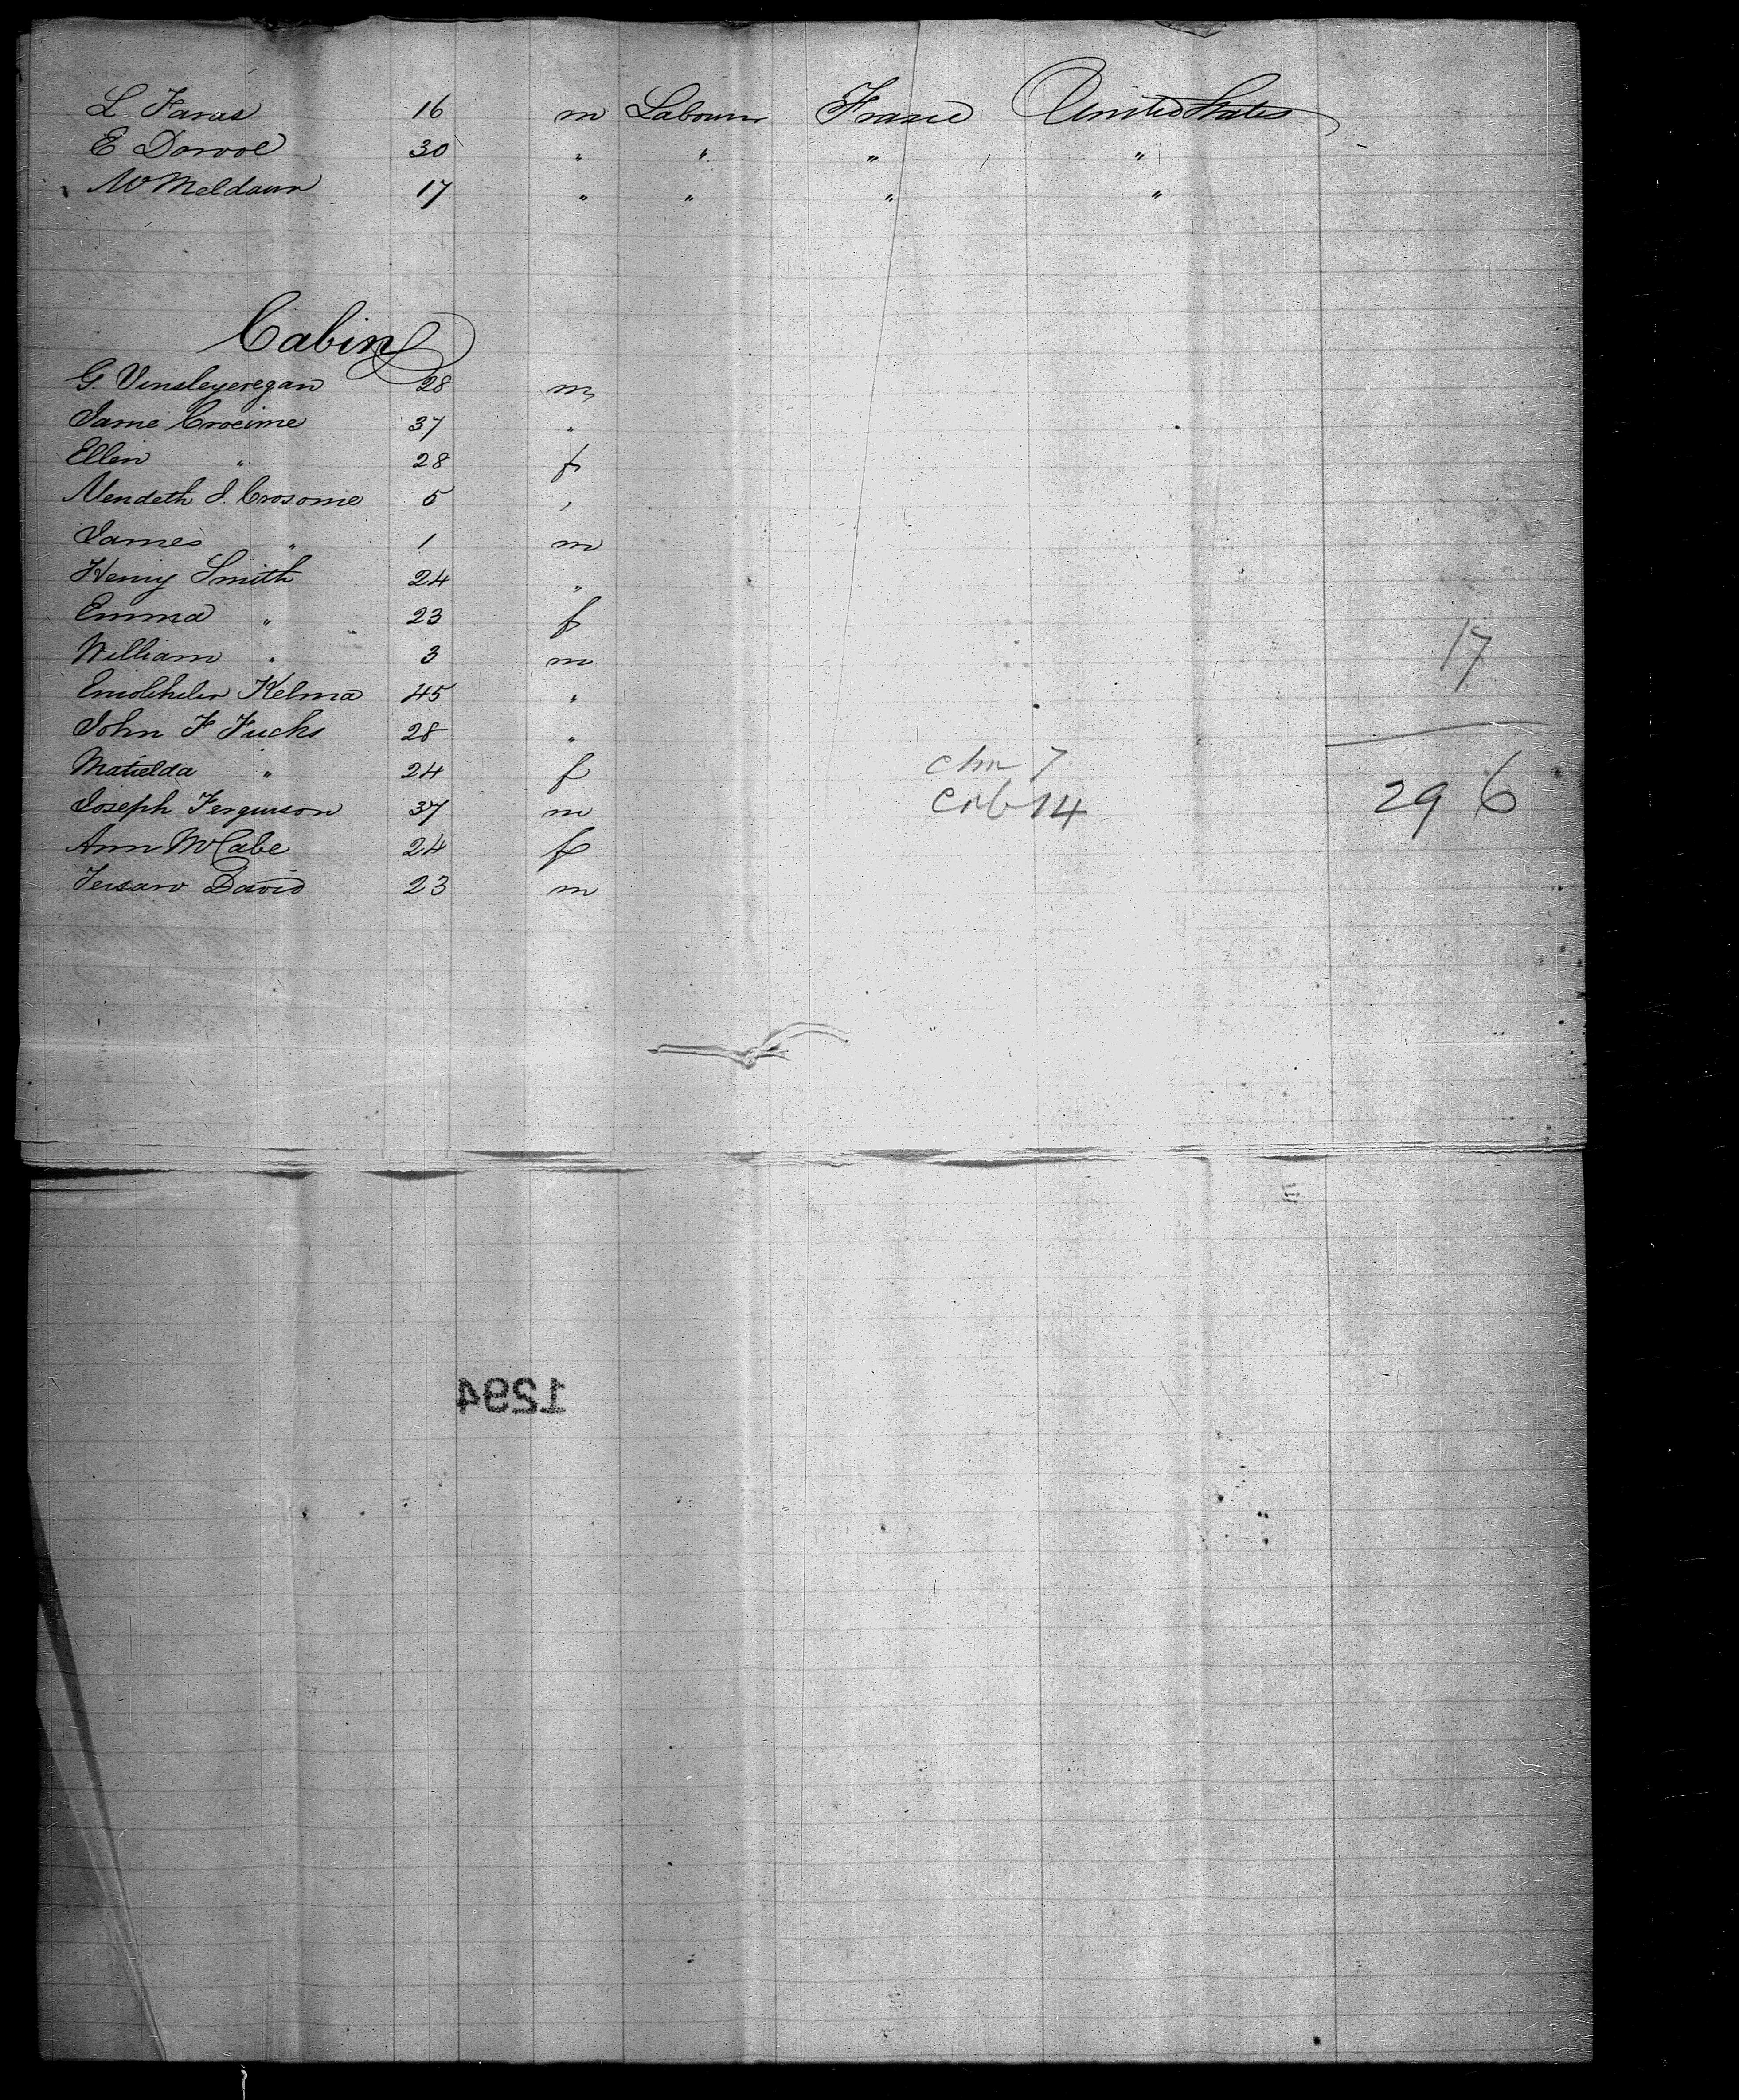 L Faras 16 m Labourer France United States
E Darvoe 30 " " " "
W Meldaun 17 " " " "
Cabin
G. Vinsleyeregan 28 m
Jame Croeime 37 "
Ellen " 28 f
Mendeth J. Crosome 5 "
James " 1 m
Henry Smith 24 "
Emma " 23 f
William " 3 m
Kelma 45 "
John F Fucks 28 "
Matielda " 24 f
Joseph Ferguson 37 m
Ann McCabe 24 f
David 23 m
17
chn 7
cab 14
29 6
1294